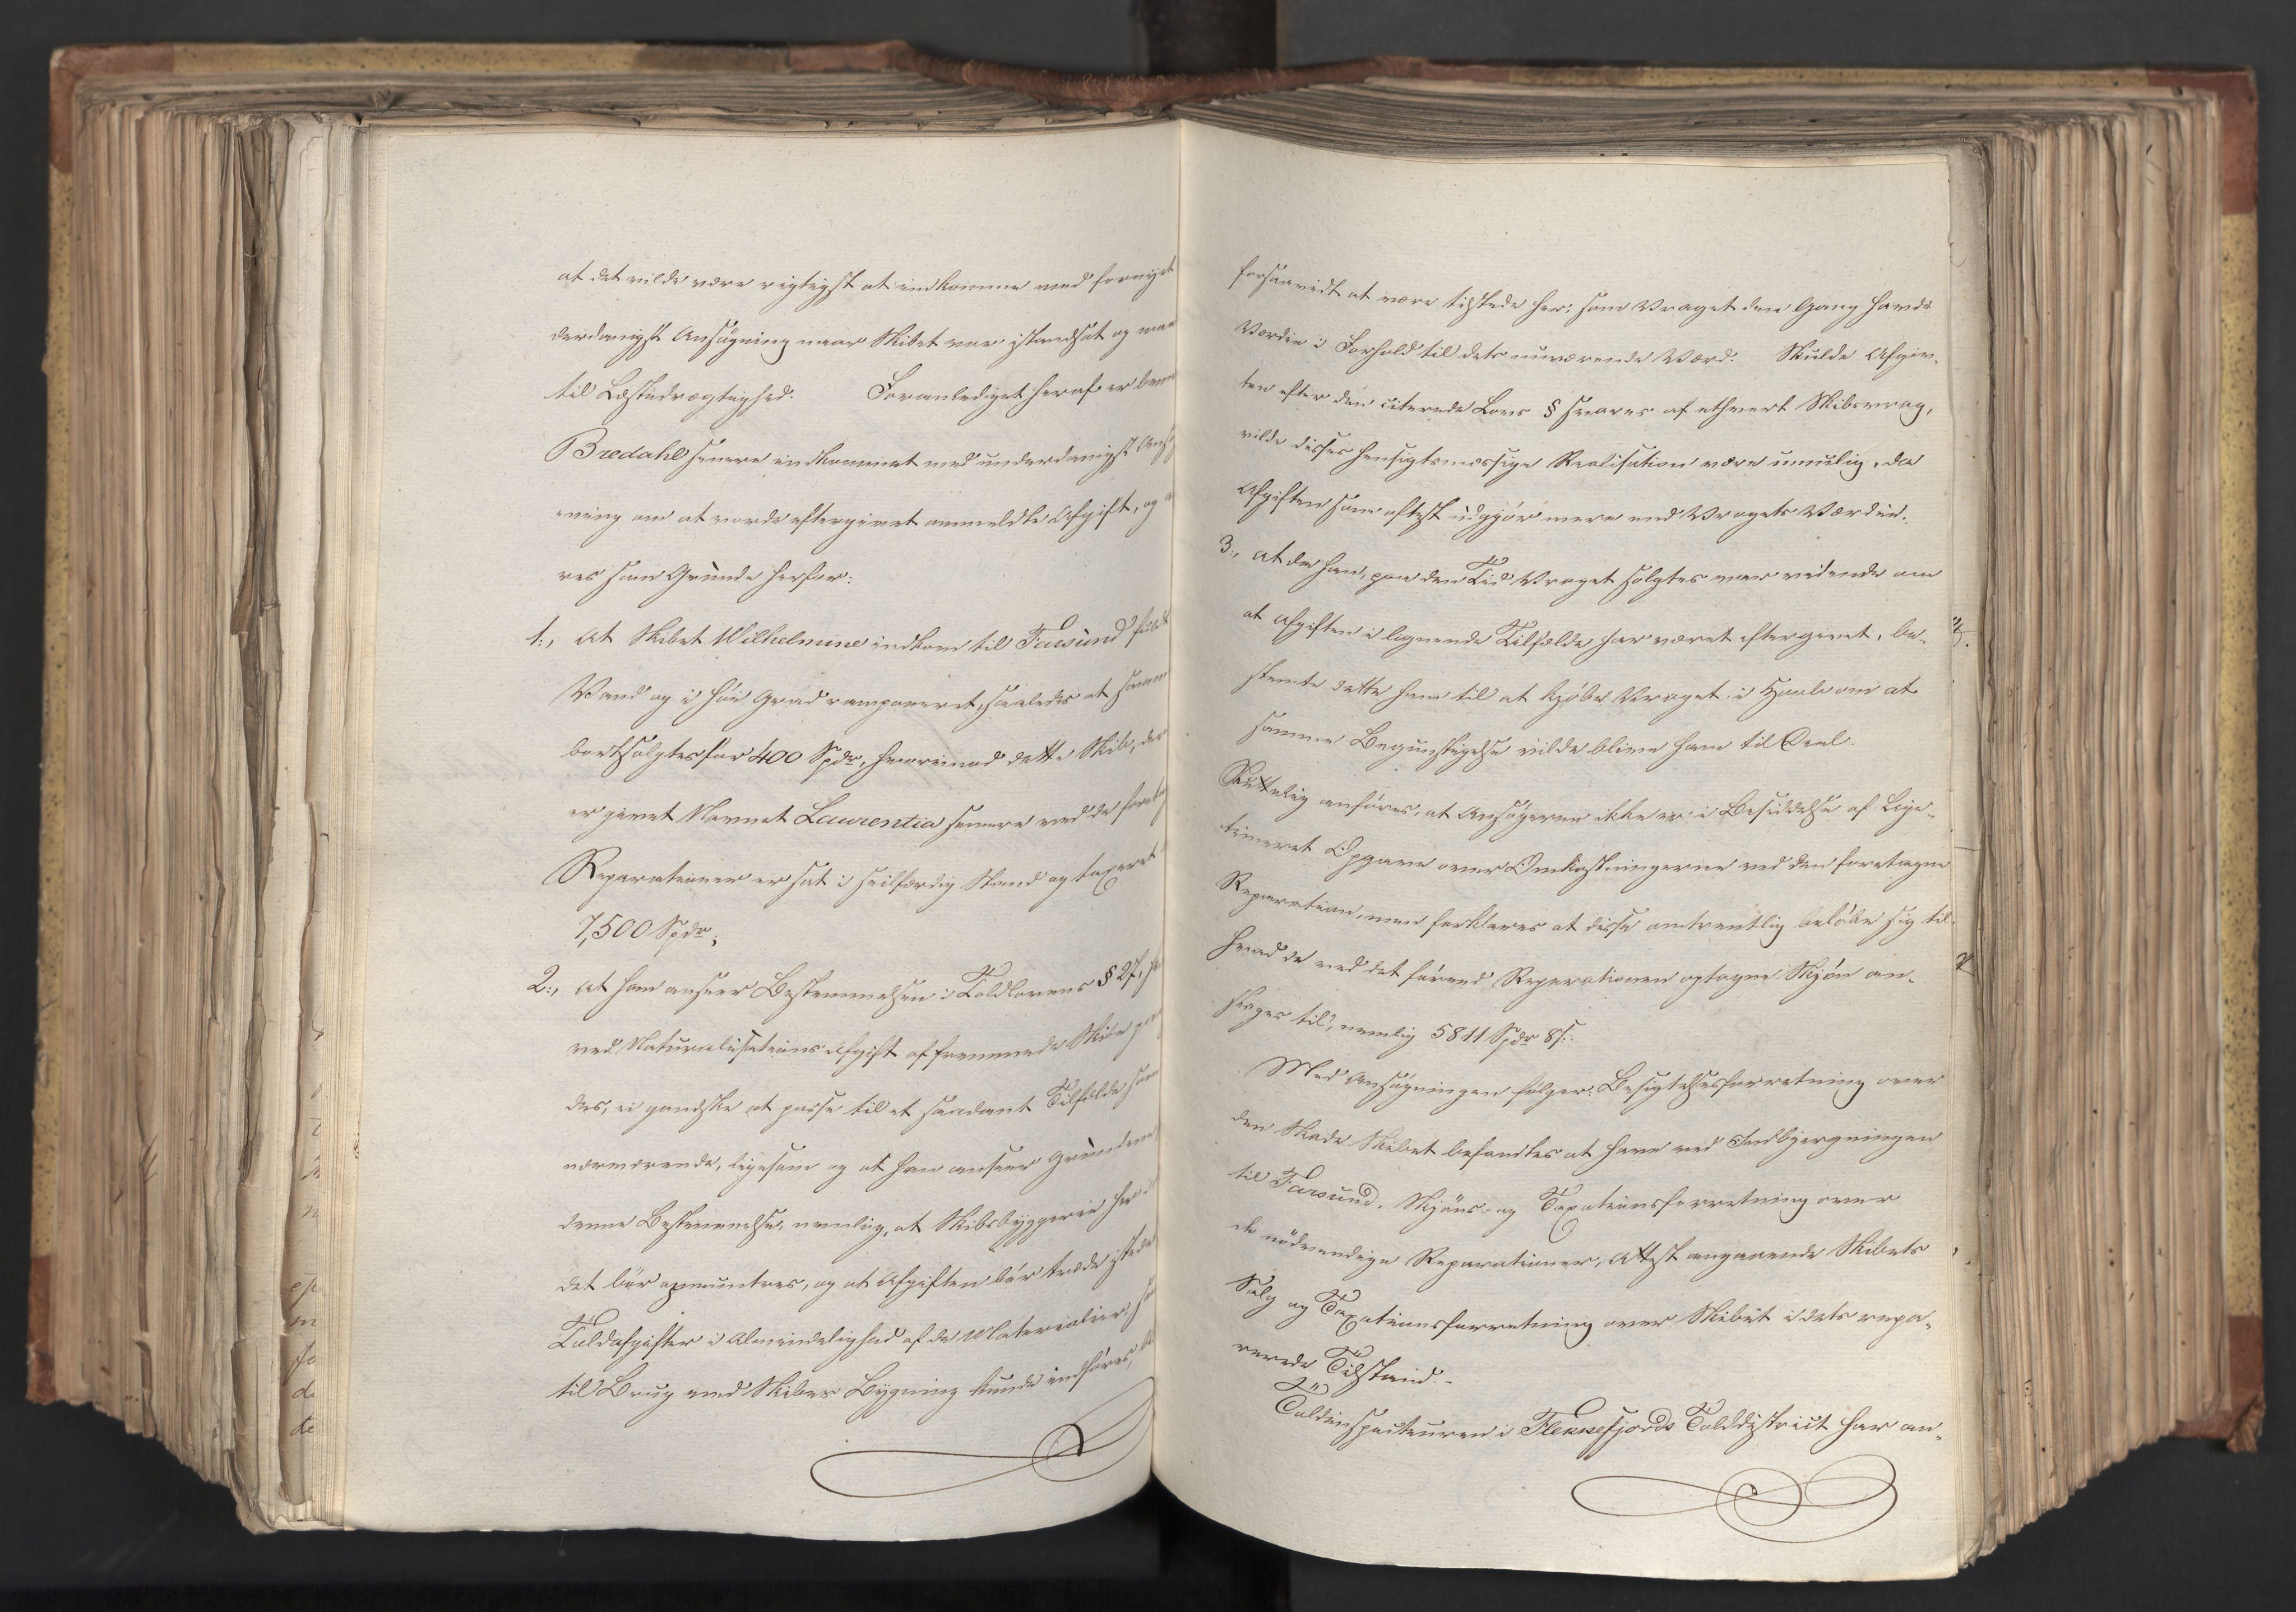 at det vilde være rigtigst at indkomme med fornyet
derdanigst Ansøgning naar Skibet var istandsat og maa
til Læstedrægtighed. Foranlediget heraf er bem
Bredahl senere indkommet med underdanigst Ansø
gning om at vorde eftergivet ommeldte Afgift, og
res som Grunde herfor:
1., At Skibet Wilhelmine indkom til Farsund fuldt
Vand og i høi Grad ramponeret, saaledes at samm
bortsolgtes for 400 Spdr, hvorimod dette Skib, der
er givet Navnet Laurentia senere ved de foretag
Reparationer er sat i seilfærdig Stand og taxeret
7,500 Spdr;
2., At han anseer Bestemmelsen i Toldlovens § 27, h
ved Naturalisations Afgift af fremmede Skibe paa
des, ei gandske at passe til et saadant Tilfælde som
nærværende, ligesom og at han anseer Grundene
denne Bestemmelse, nemlig, at Skibsbyggerie her i
det bør opmuntres, og at Afgiften bør træde istede
Toldafgifter i Almindelighed af de Materialier, so
til Brug ved Skibes Bygning kunde indføres,
forsaavidt at være tilstede her: som Vraget den Gang havde
Værdie i Forhold til dets nuværende Værd. Skulde Afgiv-
ten efter den citerede Lovs § svares af ethvert Skibsvrag,
vilde disses hensigtsmæssige Realisation være umulig, da
Afgiften som oftest udgjør mere end Vragets Værdie.
3., at da han, paa den Tid Vraget solgtes var vidende om
at Afgiften i lignende Tilfælde har været eftergivet, be-
stemte dette ham til at kjøbe Vraget i Haab om at
samme Begunstigelse vilde blive ham til Deel.
Sluttelig anføres, at Ansøgeren ikke er i Besiddelse af Legi-
timeret Opgave over Omkostningerne ved den foretagne
Reparation, men forklares at disse omtrentlig beløbe sig til
hvad de ved det førend Reparationen optagne Skjøn an-
sloges til, nemlig 5811 Spdr 8 s.
Med Ansøgningen følger: Besigtelsesforretning over
den Skade Skibet befandtes at have ved Indbjergningen
til Farsund, Skjøns- og Taxationsforretning over
de nødvendige Reparationer, Attest angaaende Skibets
Salg og Taxationsforretning over Skibet i dets repa-
rerede Tilstand.-
Toldinspecteuren i Flekkefjords Tolddistrict har an-